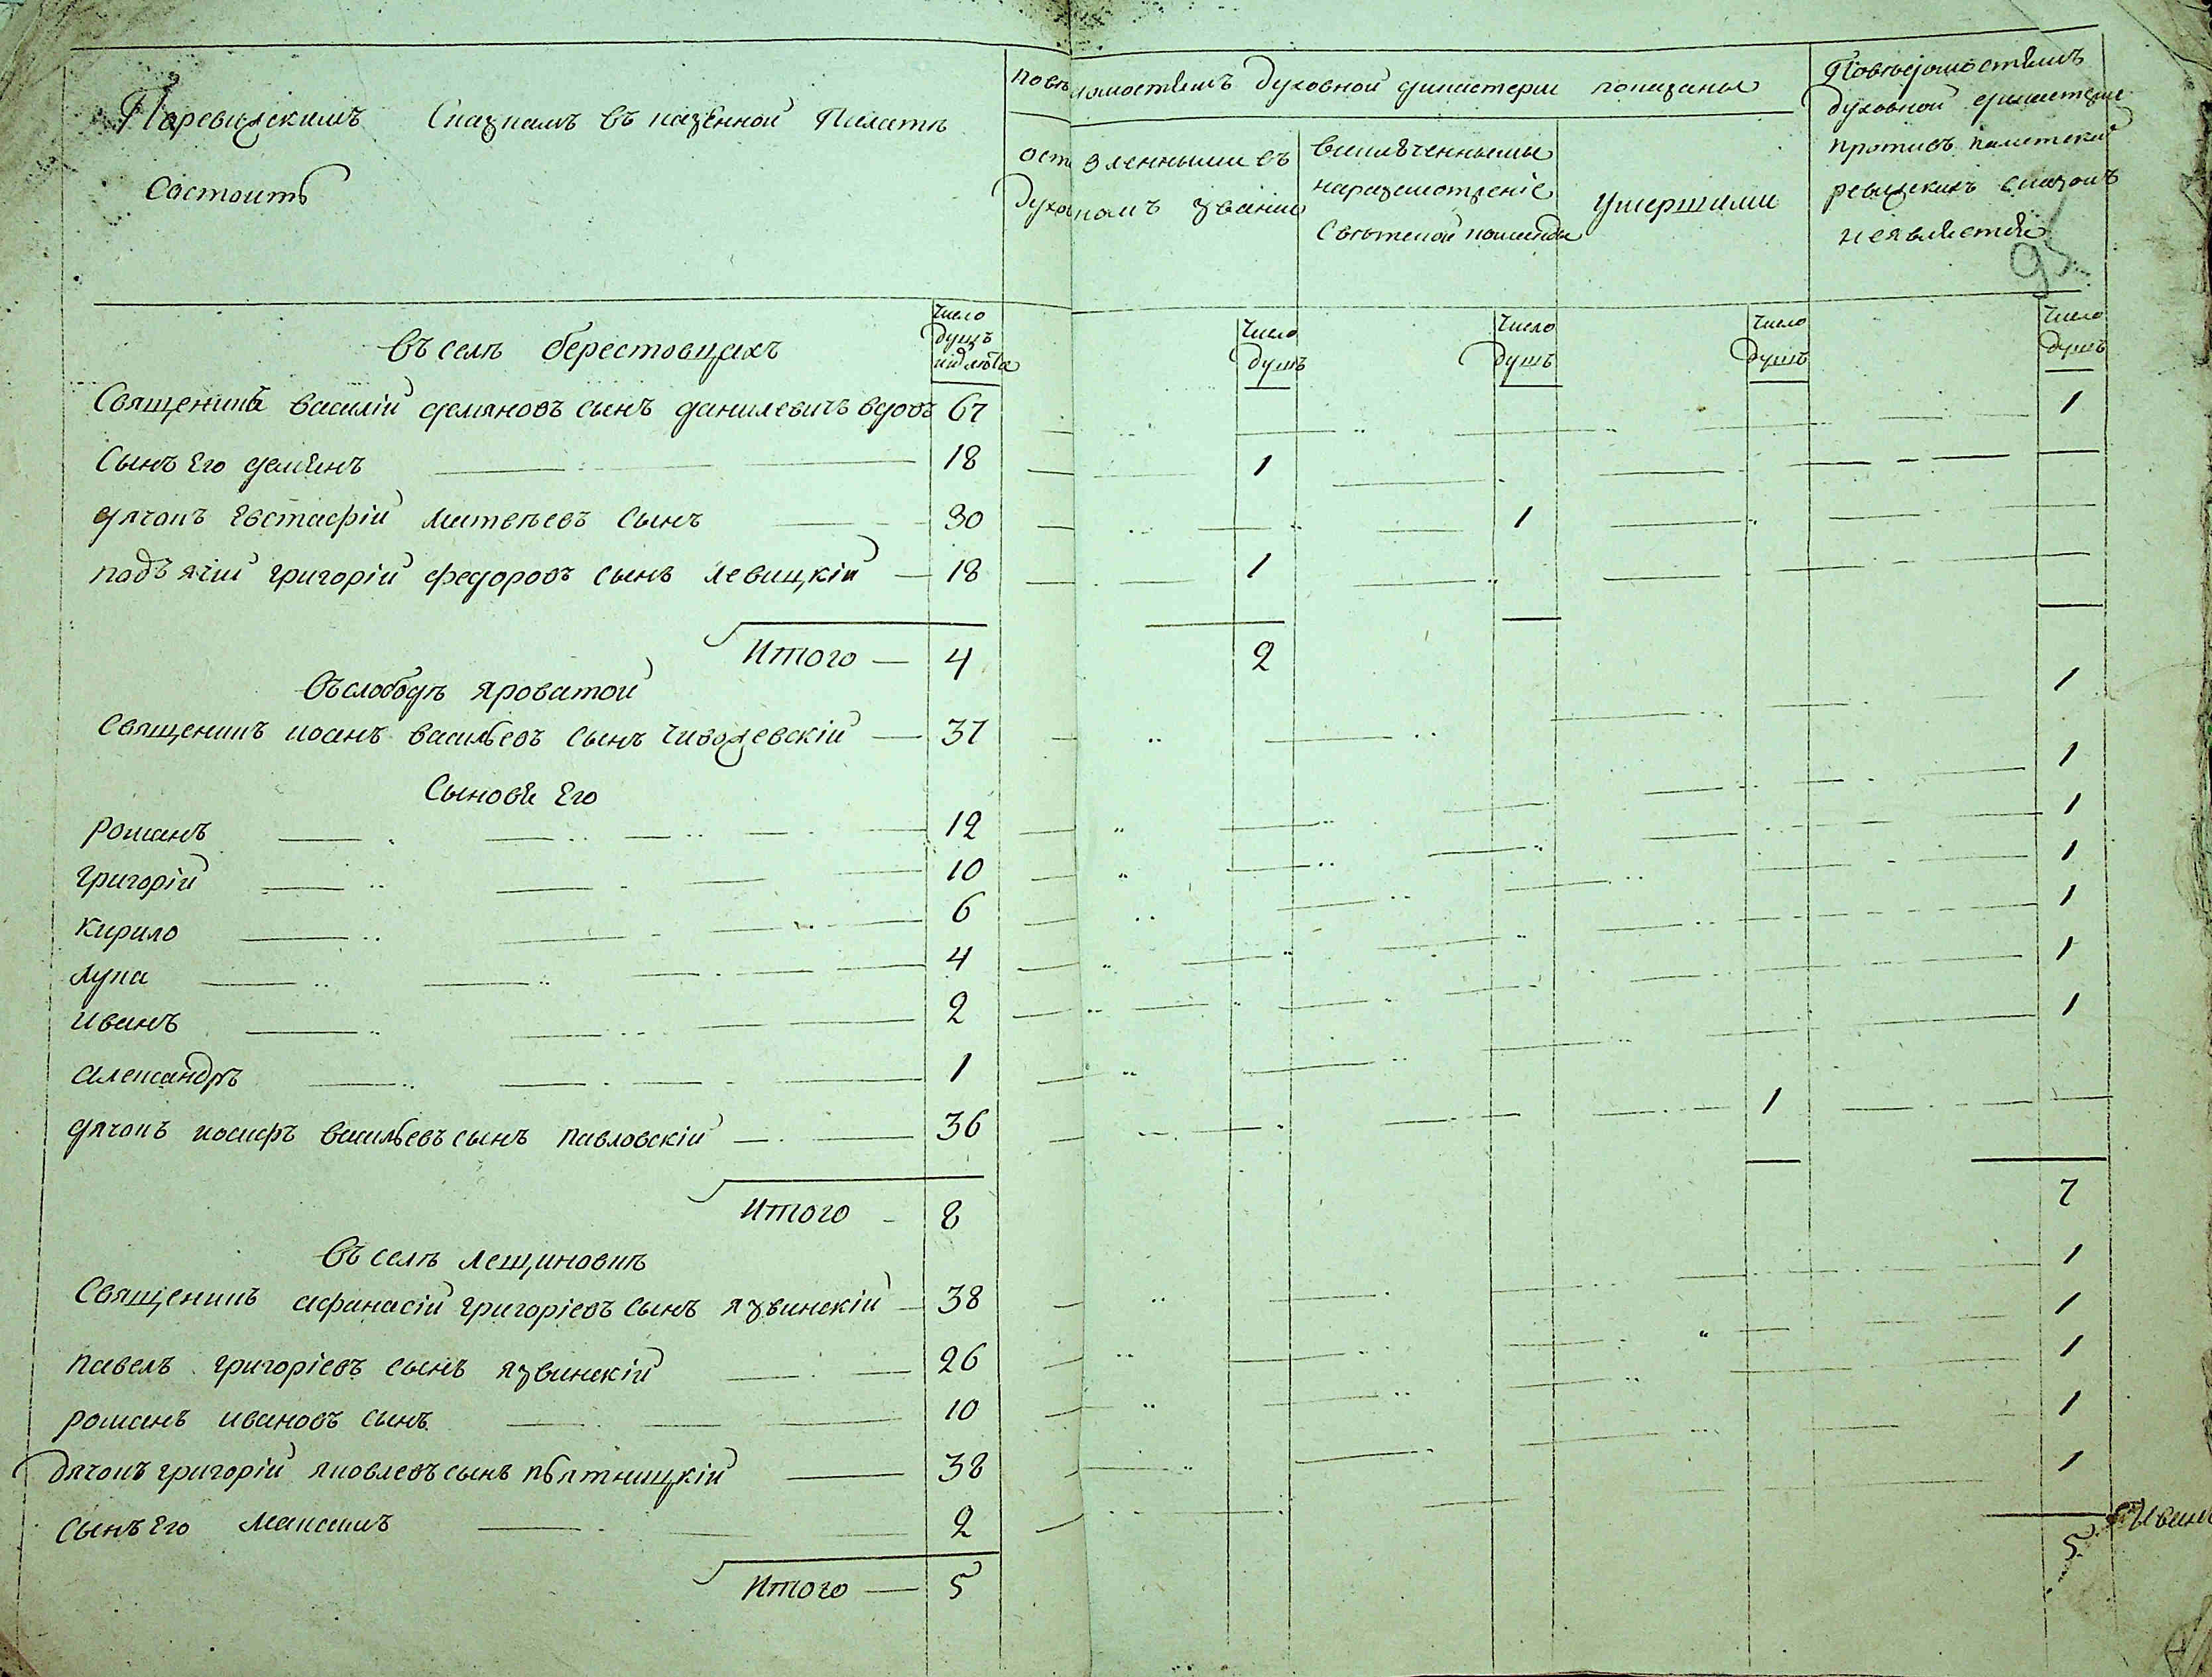 Поревизскимъ Сказкамъ въ казенной Палатѣ
Состоитъ
повѣ домостямъ духовной дикастерии показаны
оста вленными въ
духо номъ звании
виключенными
наразсмотренiе
Свѣтской команды
умершими
Повѣдомостямъ
духовной дикастерии
противъ камеских
ревизскихъ сказокъ
неявляется
95
въ селѣ берестовцахъ
Число
душъ
ид лѣта
Число
душъ
Число
душъ
Число
душъ
Число
душъ
Священикъ василiй демяновъ сынъ данилевичъ вдовъ 67 1
Сынъ его демянъ 18 1
дячокъ Евстафiй матвѣевъ сынъ 30 1
подъячiй григорiй федоровъ сынъ левицкiй 18 1
Итого 4 2
въслободѣ яроватой
Священикъ иоанъ васильевъ сынъ чиводзевскiй 37 1
Сыновя его
романъ 12 1
григорiй 10 1
кирило 6 1
лука 4 1
иванъ 2 1
александръ 1 1
дячокъ иосифъ васильевъ сынъ павловскiй 36 1
Итого 8 7
въ селѣ лещиновкѣ
Священикъ афанасiй григорiевъ сынъ язвинскiй 38 1
павелъ григорiевъ сынъ язвинскiй 26 1
романъ ивановъ сынъ 10 1
дячокъ григорiй яковлевъ сынъ пьятницкiй 38 1
сынъ его максимъ 2 1
Итого 5 5